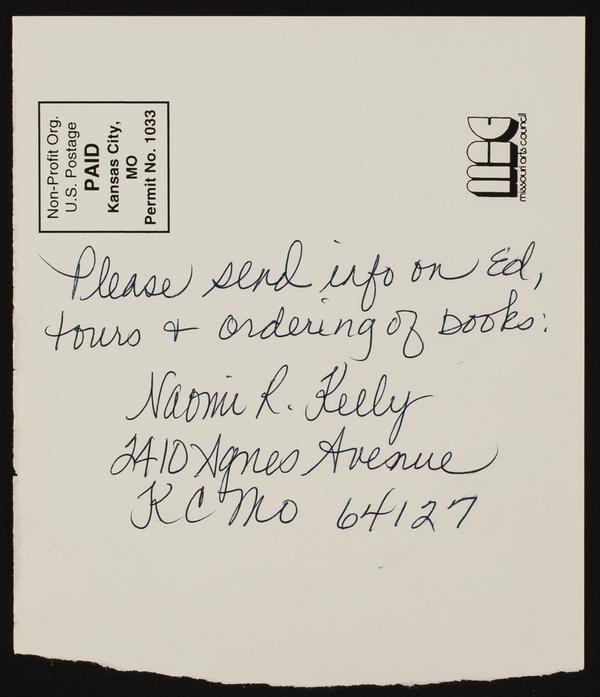 Non-Profit Org.
U.S. Postage
PAID
Kansas City,
MO
Permit No. 1033
MAC
missouri arts council
Please send info on Ed,
tours + ordering of books:
Naomi R. Kelly
2410 Agnes Avenue
KC Mo 64127